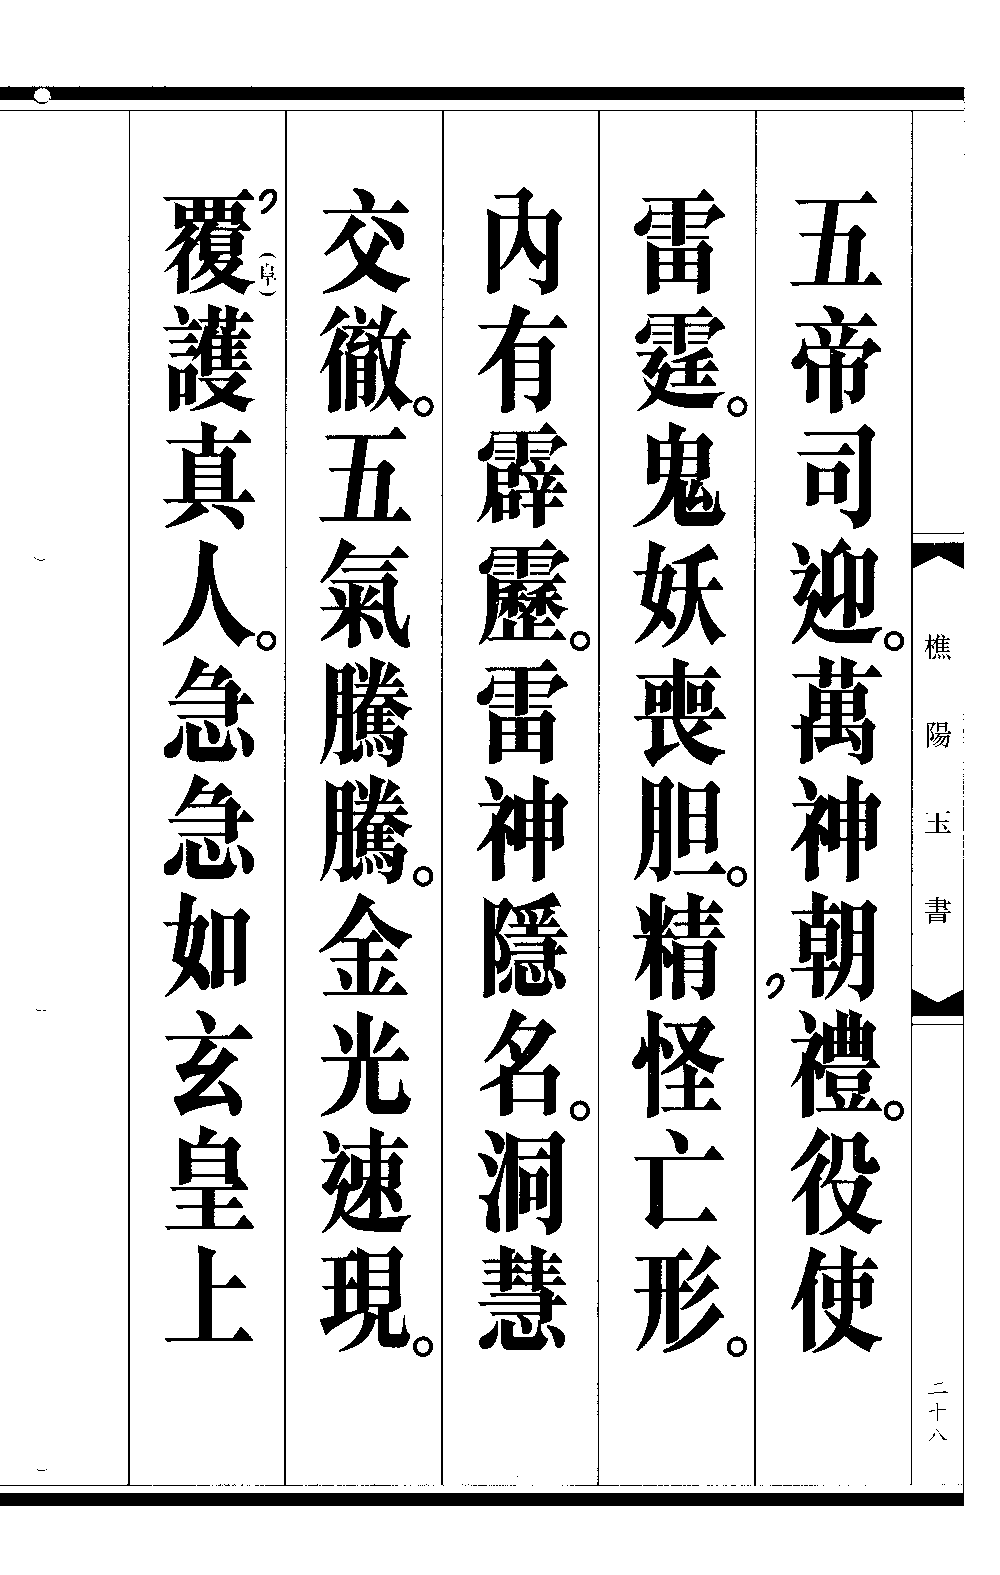 樵陽玉書
二十八
五帝司迎。萬神朝禮。役使
雷霆。鬼妖喪胆。精怪亡形。
內有霹靂。雷神隱名。洞慧
交徹。五氣騰騰。金光速現。
覆(阜)護真人。急急如玄皇上